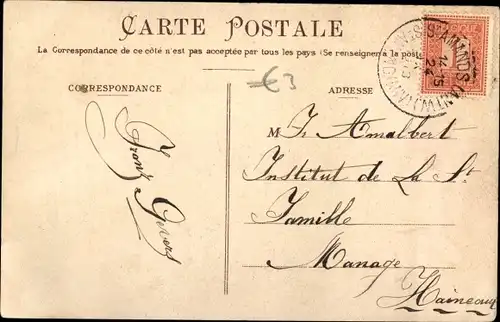 CARTE POSTALE
La Correspondance de ce côté n'est pas acceptée par tous les pays (Se renseigner à la poste
CORRESPONDANCE
€3
ADRESSE
Franz
Gevers
M Fr. Amalbert
Institut de La St.
Famille
Manage
Hainaut
ST AMANDS
14-15